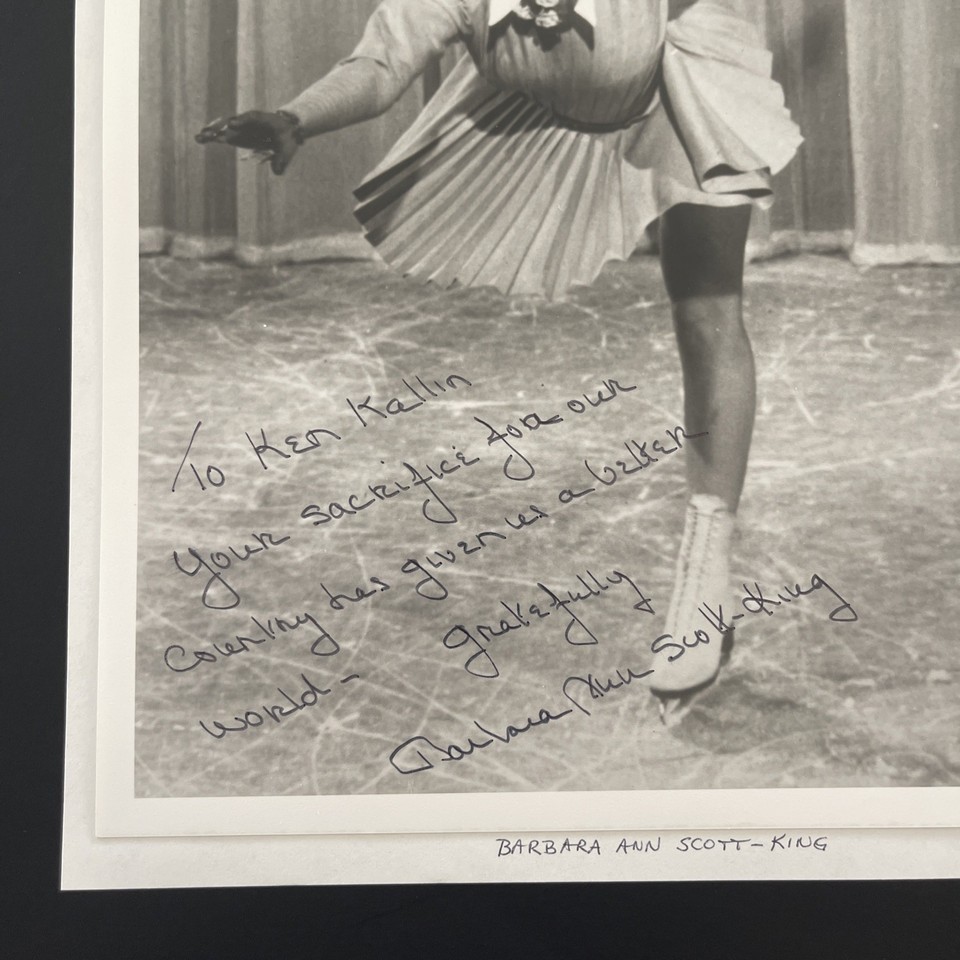 To Ken Kallin
Your sacrifice for our
Country has given us a better
world- gratefully
Barbara Ann Scott-King
BARBARA ANN SCOTT-KING